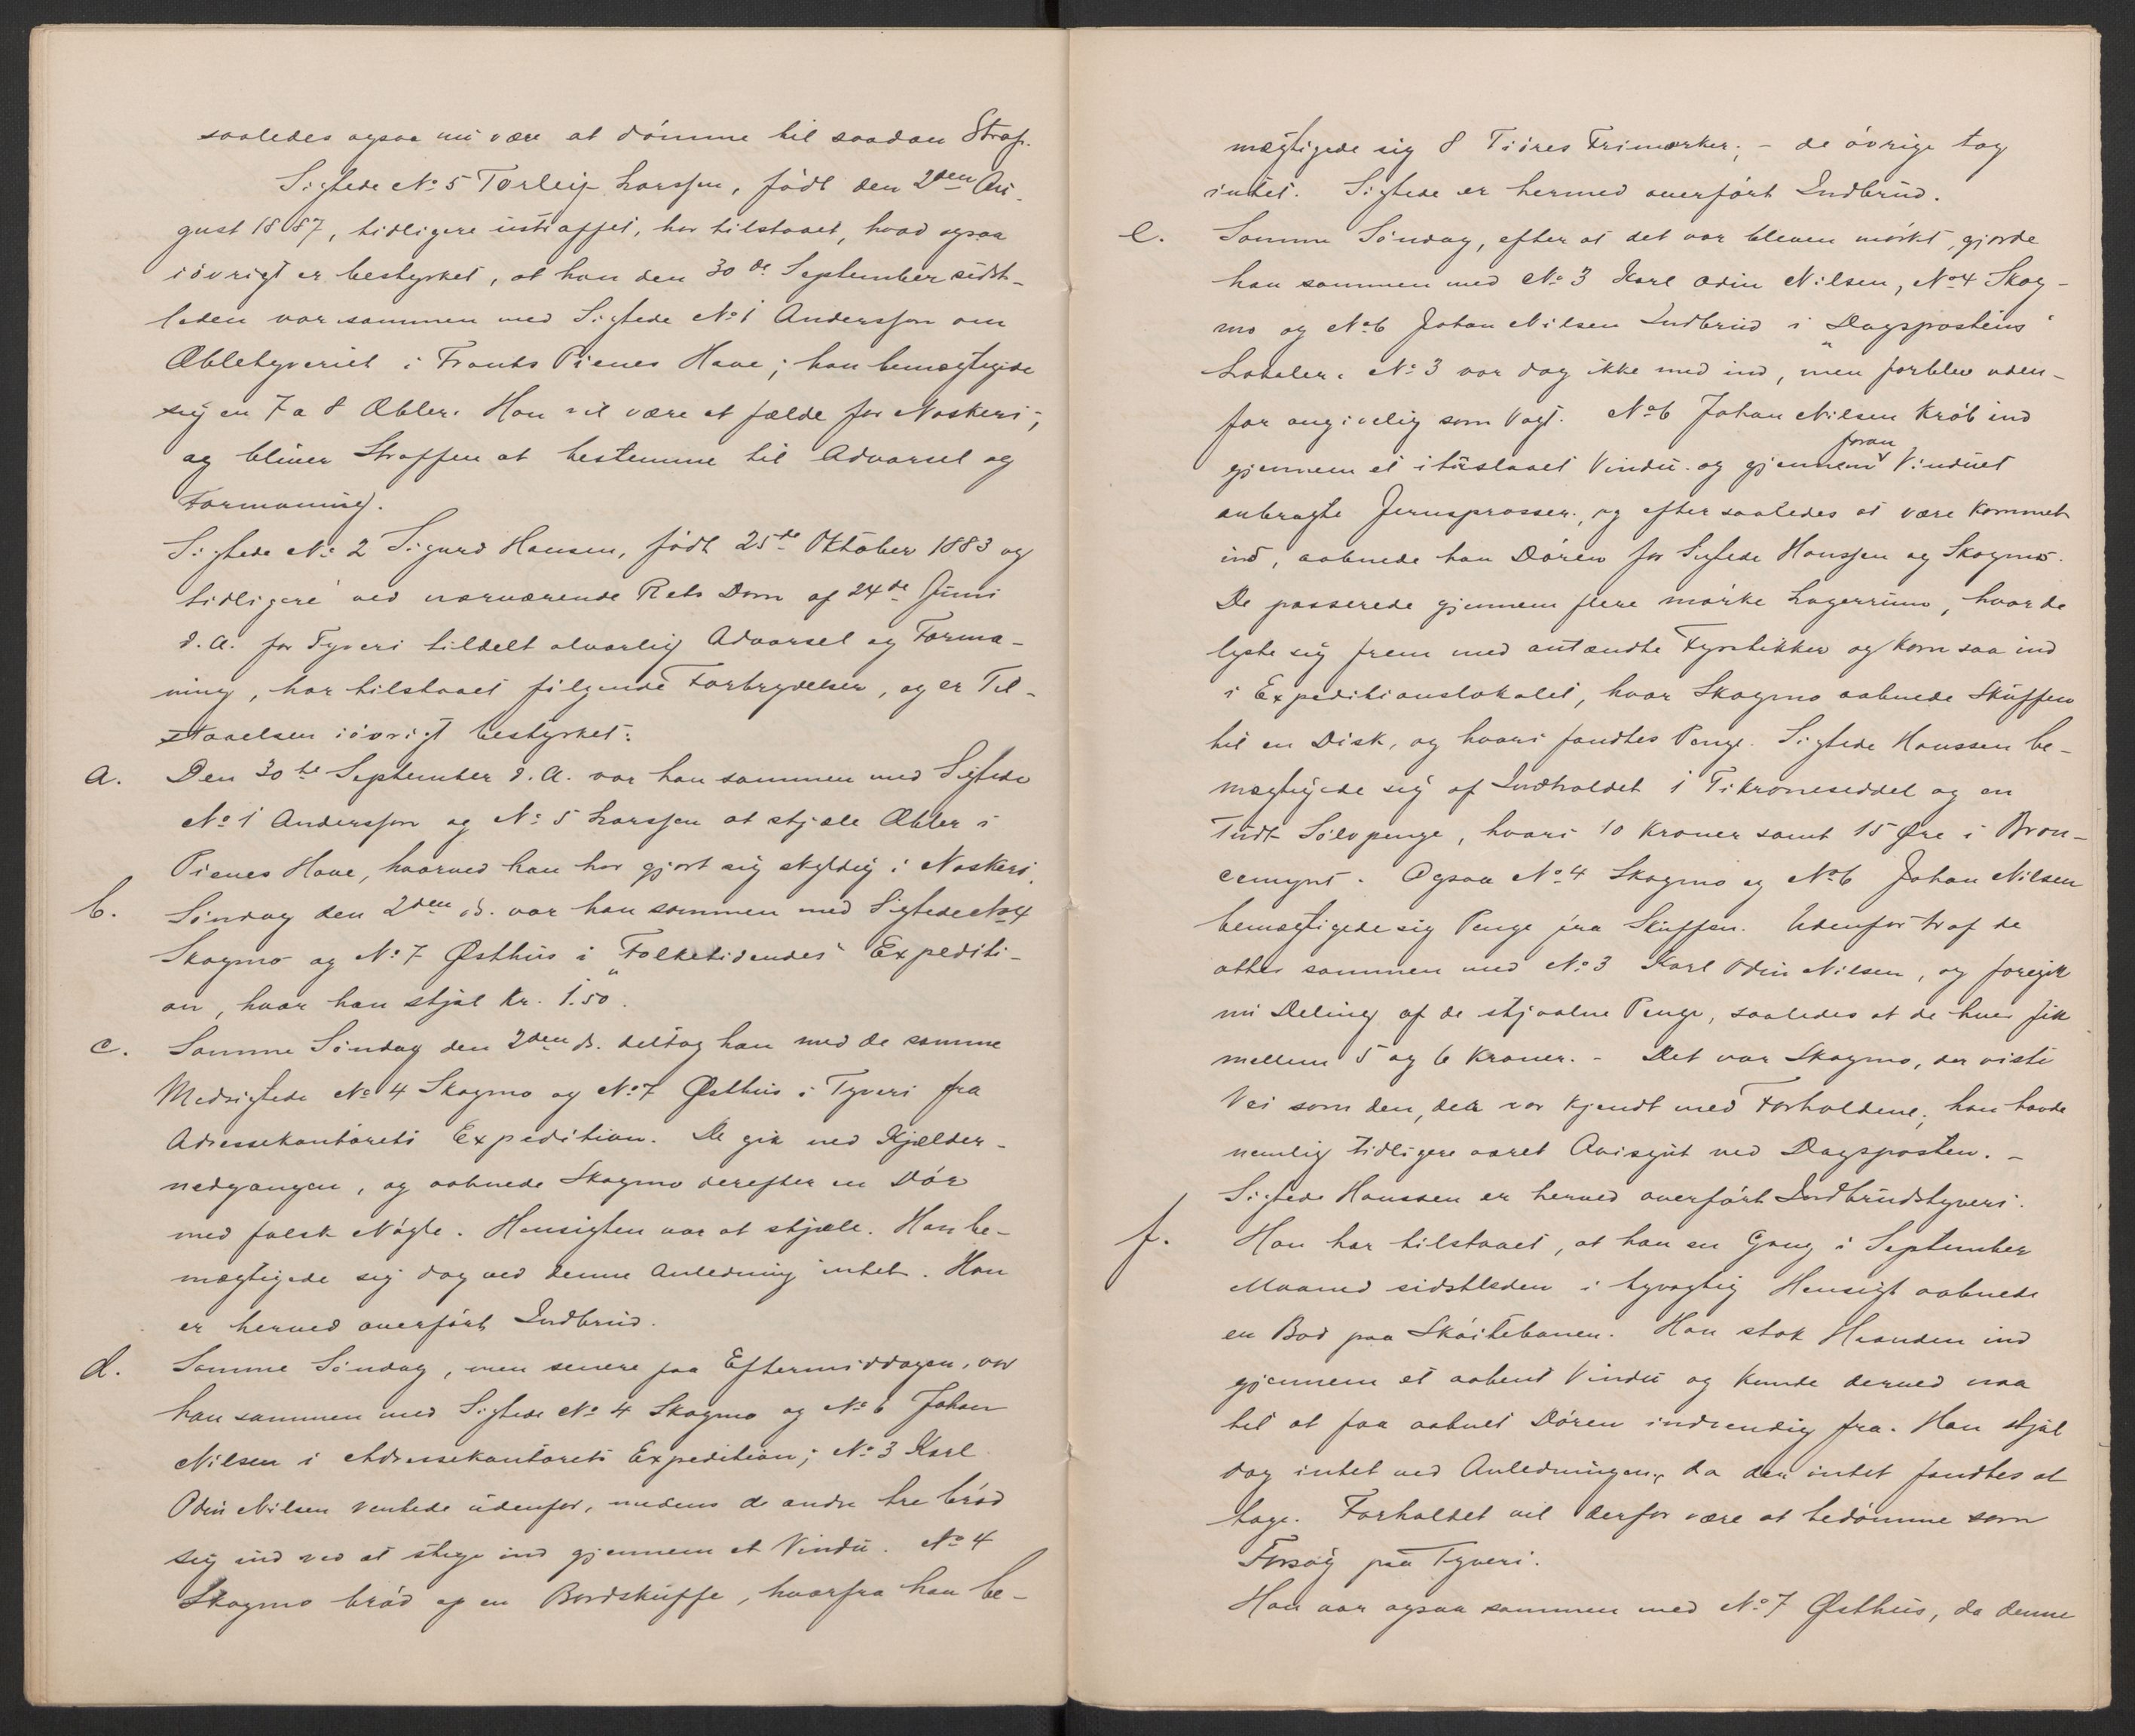 saaledes ogsaa nu være at dömme til saadan Straf.
Sigtede No 5 Torleif Larssen, födt den 2den Au-
gust 1887, tidligere ustraffet, har tilstaaet, hvad ogsaa
iövrigt er bestyrket, at han den 30de September sidst-
leden var sammen med Sigtede No 1 Anderssen om
Æbletyveriet i Frants Pienes Have; han bemægtigede
sig en 7 a 8 Æbler. Han vil være at fælde for Naskeri;
og bliver Straffen at bestemme til Advarsel og
Formaning.
Sigtede No 2 Sigurd Hansen, födt 25de Oktober 1883 og
tidligere ved nærværende Rets Dom af 24de Juni
d.A. for Tyveri tildelt alvorlig Advarsel og Forma-
ning, har tilstaaet fölgende Forbrydelser, og er Til-
staaelsen iövrigt bestyrket:
a. Den 30te September d.A. var han sammen med Sigtede
No 1 Anderssen og No 5 Larssen at stjæle Æbler i
Pienes Have, hvorved han har gjort sig skyldig i Naskeri.
b. Söndag den 2den ds. var han sammen med Sigtede No 4
Skogmo og No 7 Østhus i "Folketidendes" Expediti-
on, hvor han stjal Kr. 1.50.
c. Samme Söndag den 2den ds. deltog han med de samme
Medsigtede No 4 Skogmo og No 7 Østhus i Tyveri fra
Adressekontorets Expedition. De gik ned Kjælder-
nedgangen, og aabnede Skogmo derefter en Dör
med falsk Nögle. Hensigten var at stjæle. Han be-
mægtigede sig dog ved denne Anledning intet. Han
er herved overfört Indbrud.
d. Samme Söndag, men senere paa Eftermiddagen, var
han sammen med Sigtede No 4 Skogmo og No 6 Johan
Nilsen i Adressekontorets Expedition; No 3 Karl
Odin Nilsen ventede udenfor, medens de andre tre bröd
sig ind ved at stige ind gjennem et Vindu. No 4
Skogmo bröd op en Bordskuffe, hvorfra han be-
mægtigede sig 8 Tiöres Frimærker; - de övrige tog
intet. Sigtede er hermed overfört Indbrud.
e. Samme Söndag, efter at det var bleven mörkt, gjorde
han sammen med No 3 Karl Odin Nilsen, No 4 Skog-
mo og No 6 Johan Nilsen Indbrud i "Dagspostens"
Lokaler. No 3 var dog ikke med ind, men forblev uden-
for angivelig som Vagt. No 6 Johan Nilsen kröb ind
gjennem et ituslaaet Vindu og gjennem foran Vinduet
anbragte Jernsprosser, og efter saaledes at være kommet
ind, aabnede han Dören for Sigtede Hanssen og Skogmo.
De passerede gjennem flere mörke Lagerrum, hvor de
lyste sig frem med antændte Fyrstikker og kom saa ind
i Expeditionslokalet, hvor Skogmo aabnede Skuffen
til en Disk, og hvori fandtes Penge. Sigtede Hanssen be-
mægtigede sig af Indholdet 1 Tikroneseddel og en
Tudt Sölvpenge, hvori 10 Kroner samt 15 Øre i Bron-
cemynt. Ogsaa No 4 Skogmo og No 6 Johan Nilsen
bemægtigede sig Penge fra Skuffen. Udenfor traf de
atter sammen med No 3 Karl Odin Nilsen, og foregik
nu Deling af de stjaalne Penge, saaledes at de hver fik
mellem 5 og 6 Kroner. - Det var Skogmo, der viste
Vei som den, der var kjendt med Forholdene; han havde
nemlig tidligere været Avisgut ved Dagsposten. -
Sigtede Hanssen er herved overfört Indbrudstyveri.
f. Han har tilstaaet, at han en Gang i September
Maaned sidstleden i tyvagtig Hensigt aabnede
en Bod paa Sköitebanen. Han stak Haanden ind
gjennem et aabent Vindu og kunde derved naa
til at faa aabnet Dören indvendig fra. Han stjal
dog intet ved Anledningen, da der intet fandtes at
tage. Forholdet vil derfor være at bedömme som
Forsög paa Tyveri.
Han var ogsaa sammen med No 7 Østhus, da denne